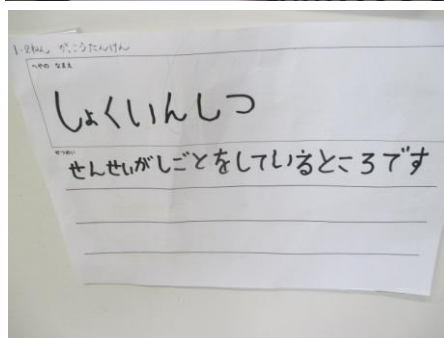 1・2ねん がっこうたんけん
へやの なまえ
しょくいんしつ
せつめい
せんせいがしごとをしているところです